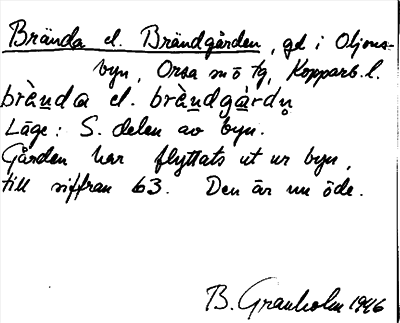 Brända el. Brändgården, gd i Oljons-
byn, Orsa sn o tg, Kopparb. l.
brä̀nda el. brä̀ndgàrdn̥
Läge: S. delen av byn.
Gården har flyttats ut ur byn,
till siffran 63. Den är nu öde.
B. Granholm 1946